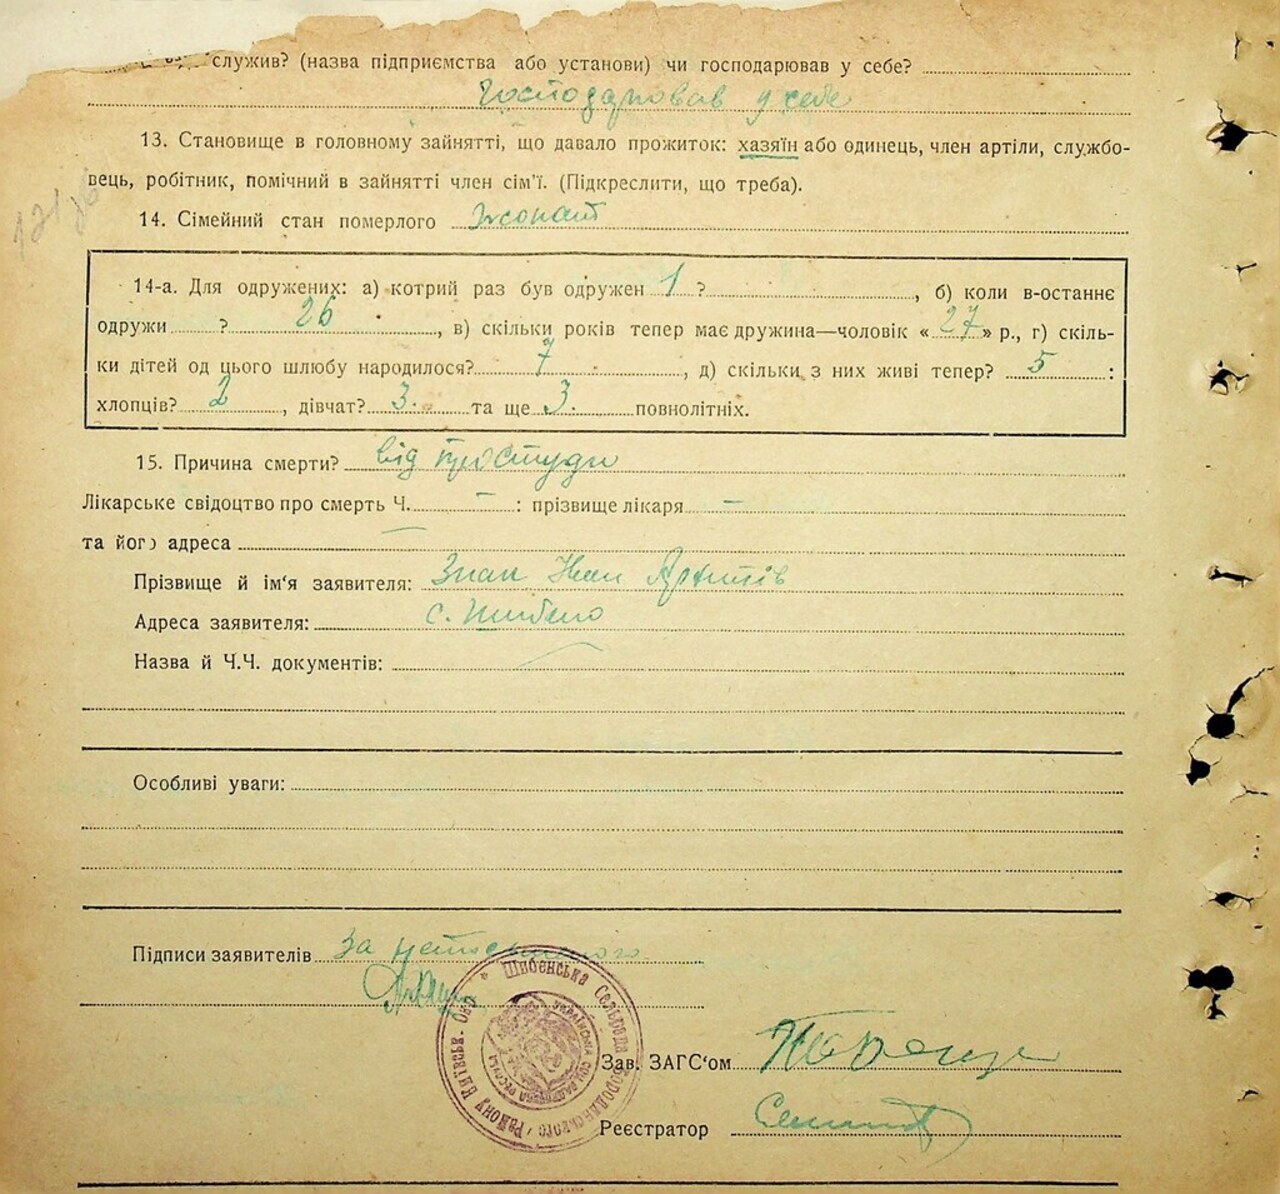 служив? (назва підприємства або установи) чи господарював у себе?
Господарював у себе
13. Становище в головному зайнятті, що давало прожиток: хазяїн або одинець, член артіли, службо-
вець, робітник, помічний в зайнятті член сім'ї. (Підкреслити, що треба).
14. Сімейний стан померлого Жонат
14-а. Для одружених: а) котрий раз був одружен 1 ?, б) коли в-останнє
одружи ? 26, в) скільки років тепер має дружина—чоловік «27» р., г) скіль-
ки дітей од цього шлюбу народилося? 7, д) скільки з них живі тепер? 5 :
хлопців? 2, дівчат? 3. та ще 3. повнолітніх.
15. Причина смерти? від простуди
Лікарське свідоцтво про смерть Ч. – : прізвище лікаря –
та його адреса
Прізвище й ім'я заявителя: Іван Архипів
Адреса заявителя: с.
Назва й Ч.Ч. документів:
Особливі уваги:
Підписи заявителів За
Сельрада Бородянського Району Київськ. Окр.
Зав. ЗАГС'ом
Реєстратор